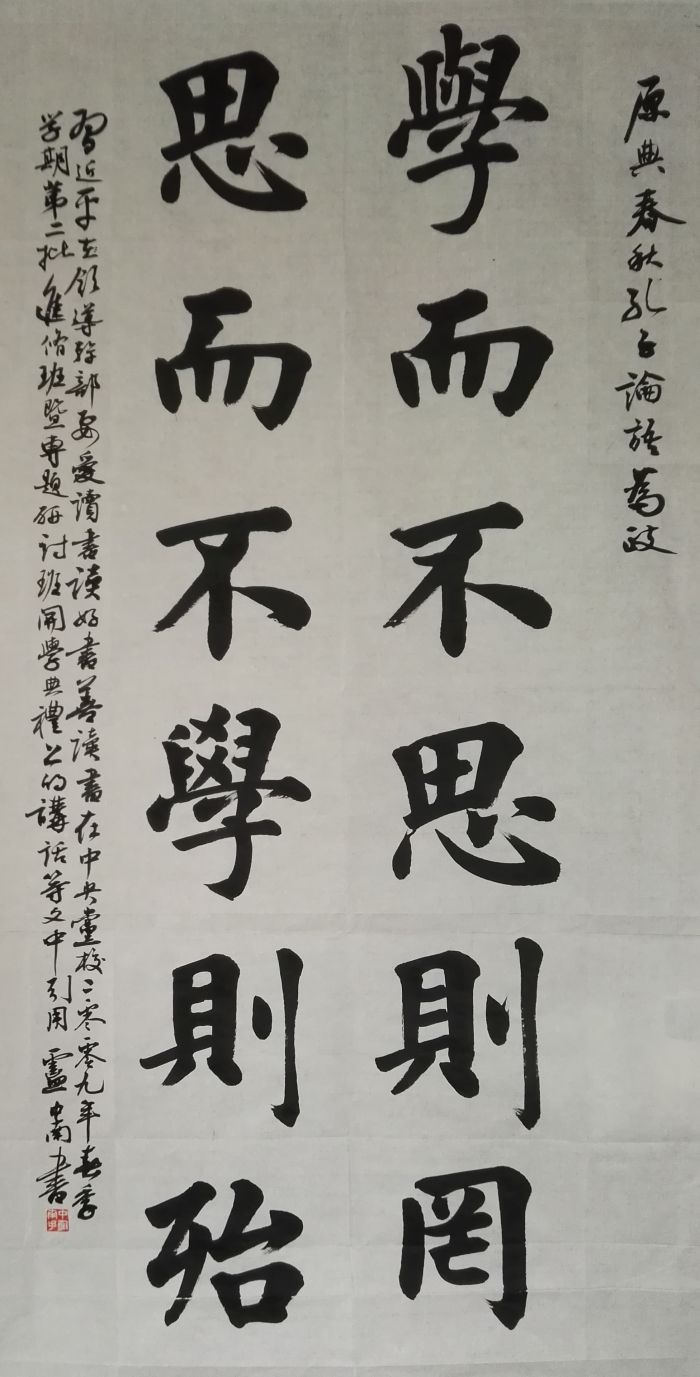 原典春秋孔子論語為政
學而不思則罔
思而不學則殆
習近平在領導幹部要愛讀書讀好書善讀書在中央黨校二零零九年春季
学期第二批進修班暨專題研討班開學典禮上的講話等文中引用 盧中南書